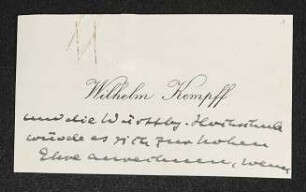 Wilhelm Kempff
und die Württbg. Hochschule
würde es sich zur hohen
Ehre anrechnen, wenn